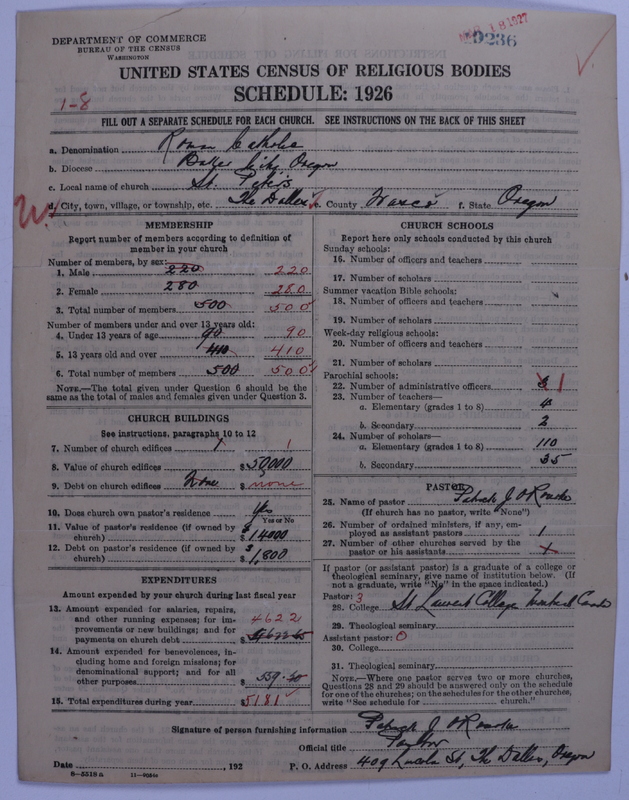 DEPARTMENT OF COMMERCE
BUREAU OF THE CENSUS
WASHINGTON
1927
9236
UNITED STATES CENSUS OF RELIGIOUS BODIES
SCHEDULE: 1926
1-8
FILL OUT A SEPARATE SCHEDULE FOR EACH CHURCH. SEE INSTRUCTIONS ON THE BACK OF THIS SHEET
a. Denomination Roman Catholic
b. Diocese Baker City, Oregon
c. Local name of church St. Peter's
d. City, town, village, or township, etc. The Dalles e. County Wasco f. State Oregon
W.
MEMBERSHIP
Report number of members according to definition of
member in your church
Number of members, by sex:
1. Male 220 220
2. Female 280 280
3. Total number of members 500 500
Number of members under and over 13 years old:
4. Under 13 years of age 90 90
5. 13 years old and over 410 410
6. Total number of members 500 500
NOTE.—The total given under Question 6 should be the
same as the total of males and females given under Question 3.
CHURCH BUILDINGS
See instructions, paragraphs 10 to 12
7. Number of church edifices 1 1
8. Value of church edifices $50,000
9. Debt on church edifices None $ none
10. Does church own pastor's residence Yes
Yes or No
11. Value of pastor's residence (if owned by
church) $14000
12. Debt on pastor's residence (if owned by
church) $1,800
EXPENDITURES
Amount expended by your church during last fiscal year
13. Amount expended for salaries, repairs,
and other running expenses; for im-
provements or new buildings; and for
payments on church debt $4622
14. Amount expended for benevolences, in-
cluding home and foreign missions; for
denominational support; and for all
other purposes $559.50
15. Total expenditures during year $5181
CHURCH SCHOOLS
Report here only schools conducted by this church
Sunday schools:
16. Number of officers and teachers
17. Number of scholars
Summer vacation Bible schools:
18. Number of officers and teachers
19. Number of scholars
Week-day religious schools:
20. Number of officers and teachers
21. Number of scholars
Parochial schools:
22. Number of administrative officers 1
23. Number of teachers—
a. Elementary (grades 1 to 8) 4
b. Secondary 2
24. Number of scholars—
a. Elementary (grades 1 to 8) 110
b. Secondary 35
PASTOR
25. Name of pastor Patrick J O'Rourke
(If church has no pastor, write "None")
26. Number of ordained ministers, if any, em-
ployed as assistant pastors 1
27. Number of other churches served by the
pastor or his assistants x
If pastor (or assistant pastor) is a graduate of a college or
theological seminary, give name of institution below. (If
not a graduate, write "No" in the space indicated.)
Pastor: 3
28. College St Laurent College Montreal Canada
29. Theological seminary
Assistant pastor: 0
30. College
31. Theological seminary
NOTE.—Where one pastor serves two or more churches,
Questions 28 and 29 should be answered only on the schedule
for one of the churches; on the schedules for the other churches,
write "See schedule for church."
Signature of person furnishing information Patrick J O'Rourke
Official title Pastor
Date , 192 P. O. Address 409 Lincoln St, The Dalles, Oregon
8—5518 a